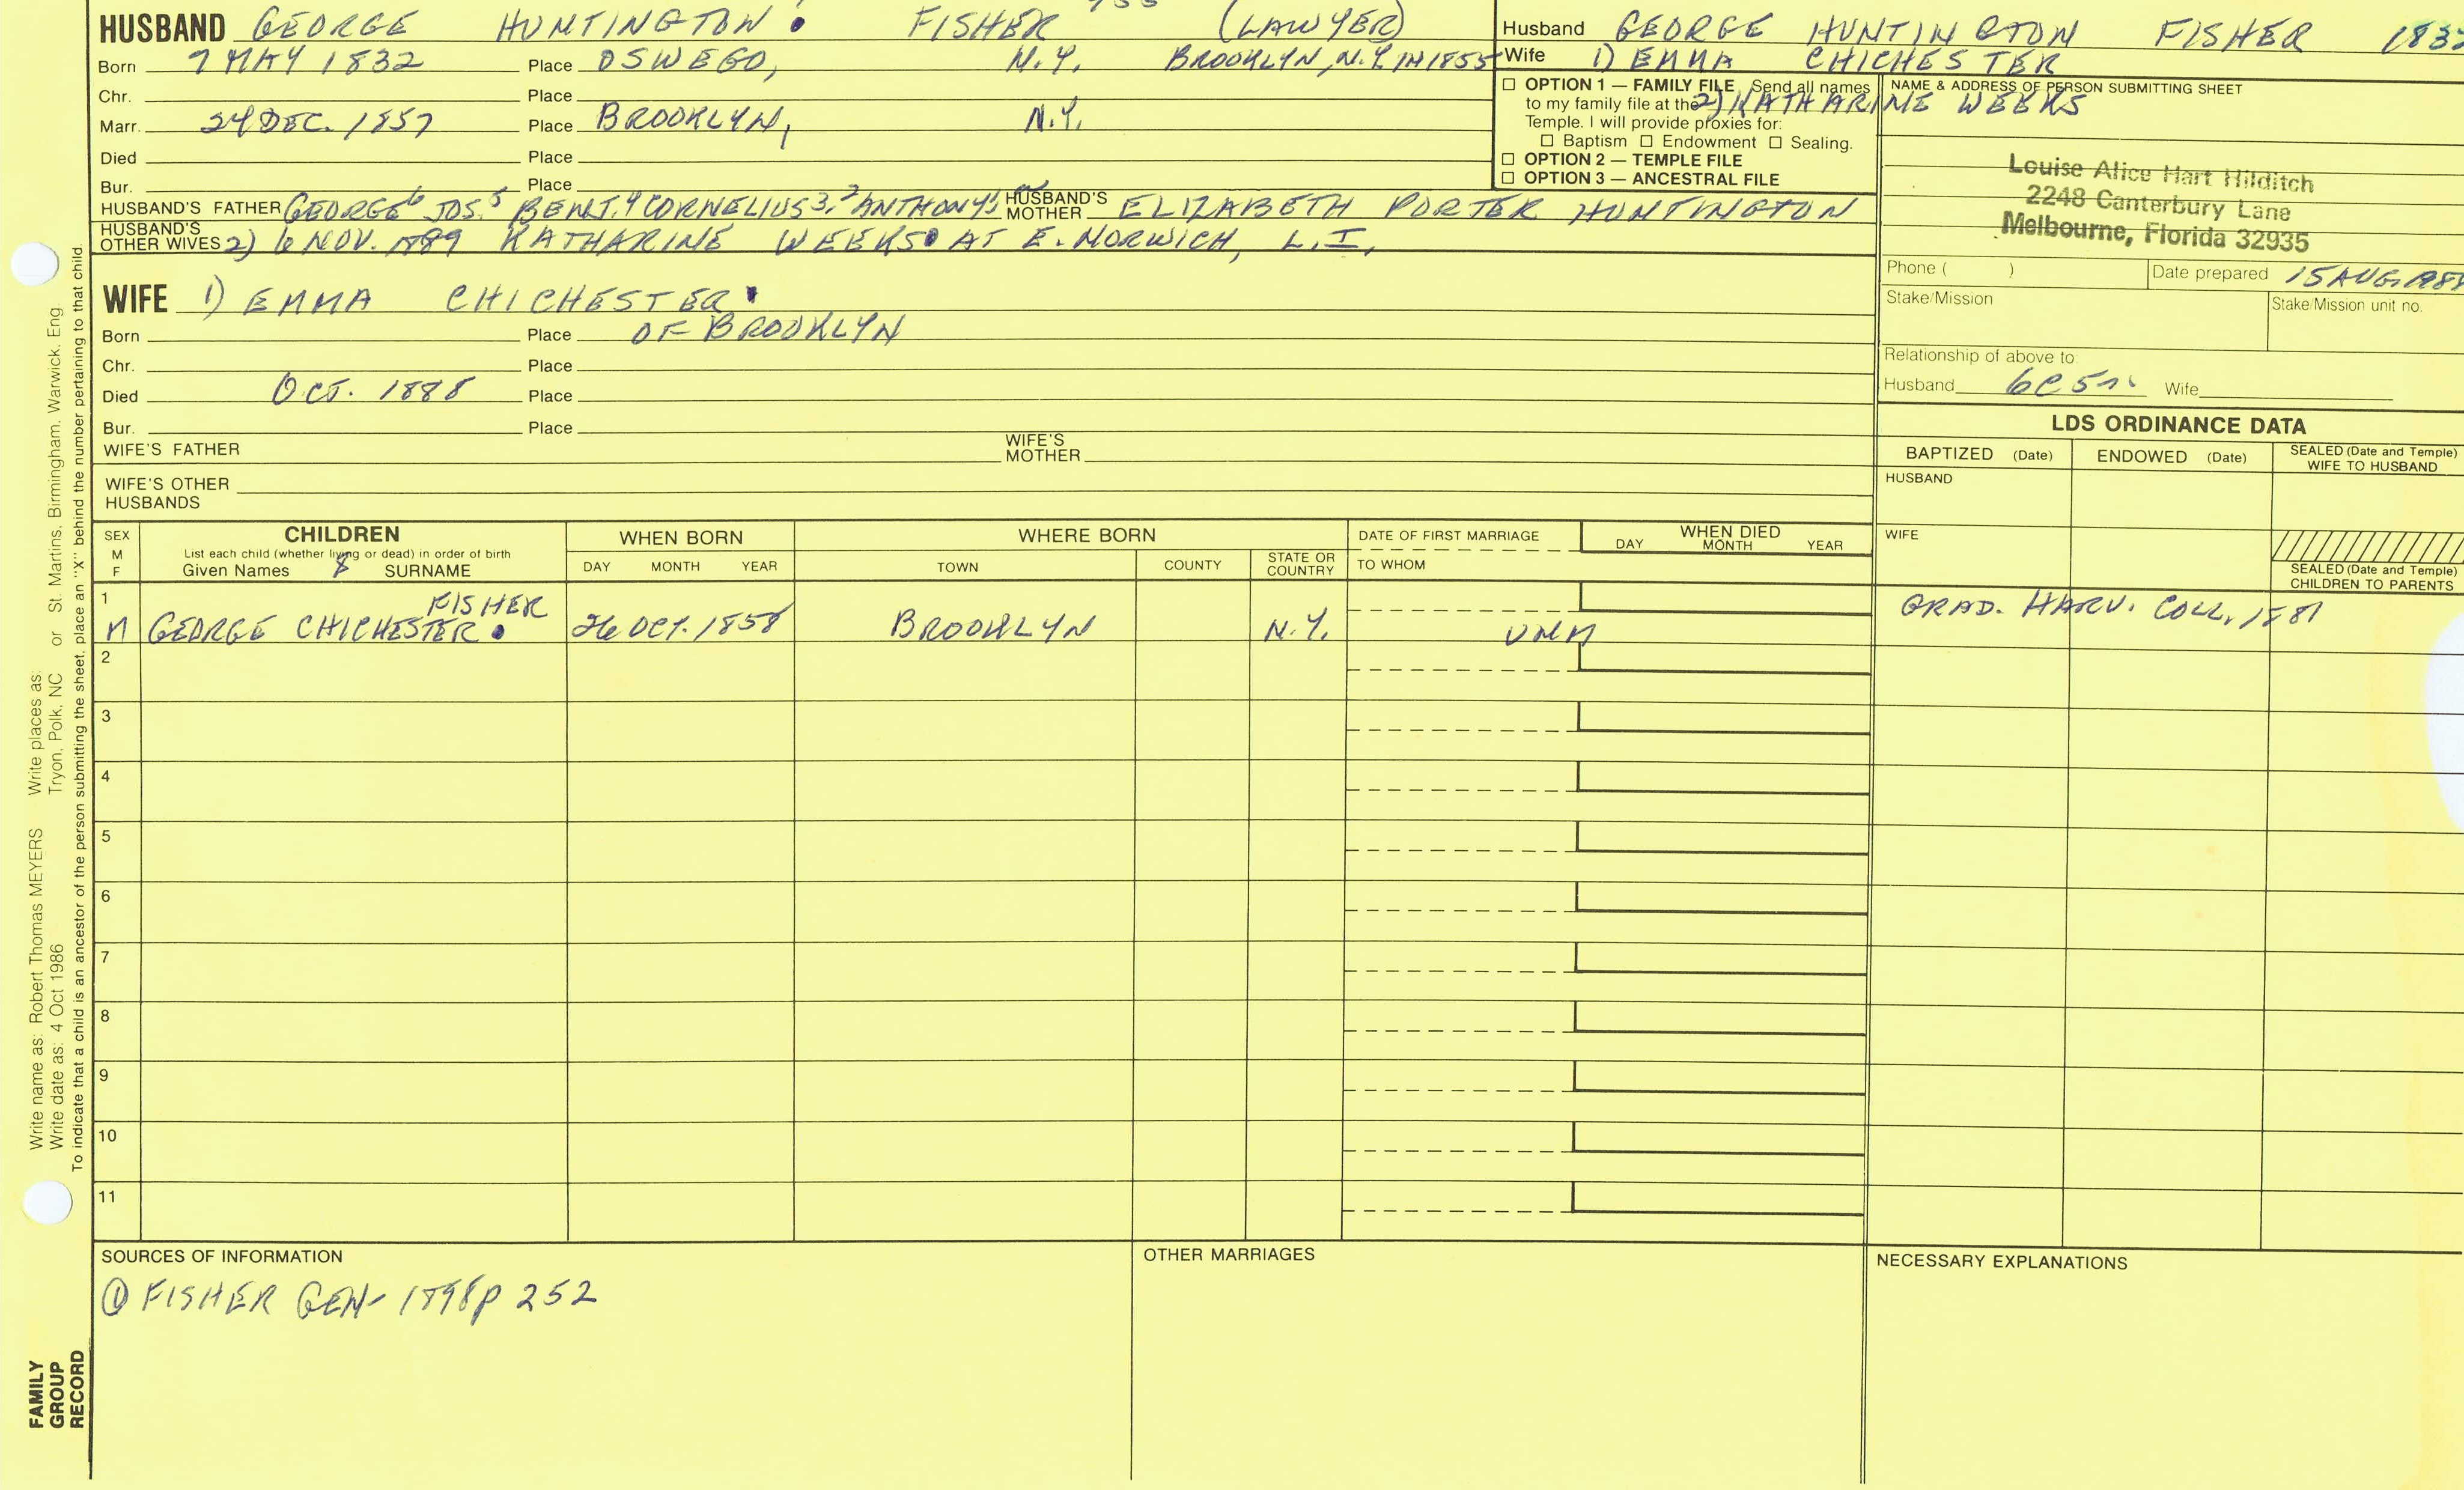 HUSBAND GEORGE HUNTINGTON FISHER (LAWYER)
Born 7 MAY 1832 Place OSWEGO, N.Y. BROOKLYN, N.Y. IN 1855
Chr. Place
Marr. 24 DEC. 1857 Place BROOKLYN, N.Y.
Died Place
Bur. Place
HUSBAND'S FATHER GEORGE6 JOS.5 BENJ.4 CORNELIUS3,2 ANTHONY1 HUSBAND'S MOTHER ELIZABETH PORTER HUNTINGTON
HUSBAND'S OTHER WIVES 2) 6 NOV. 1889 KATHARINE WEEKS AT E. NORWICH, L.I.
WIFE 1) EMMA CHICHESTER
Born Place OF BROOKLYN
Chr. Place
Died OCT. 1888 Place
Bur. Place
WIFE'S FATHER WIFE'S MOTHER
WIFE'S OTHER HUSBANDS
Husband GEORGE HUNTINGTON FISHER
Wife 1) EMMA CHICHESTER
2) KATHARINE WEEKS
☐ OPTION 1 — FAMILY FILE Send all names
to my family file at the
Temple. I will provide proxies for:
☐ Baptism ☐ Endowment ☐ Sealing.
☐ OPTION 2 — TEMPLE FILE
☐ OPTION 3 — ANCESTRAL FILE
NAME & ADDRESS OF PERSON SUBMITTING SHEET
Louise Alice Hart Hilditch
2248 Canterbury Lane
Melbourne, Florida 32935
Phone ( ) Date prepared 15 AUG.
Stake/Mission Stake/Mission unit no.
Relationship of above to:
Husband 6C 5r. Wife
LDS ORDINANCE DATA
BAPTIZED (Date) ENDOWED (Date) SEALED (Date and Temple) WIFE TO HUSBAND
HUSBAND
WIFE
SEALED (Date and Temple) CHILDREN TO PARENTS
SEX M F
CHILDREN
List each child (whether living or dead) in order of birth
Given Names SURNAME
WHEN BORN
DAY MONTH YEAR
WHERE BORN
TOWN COUNTY STATE OR COUNTRY
DATE OF FIRST MARRIAGE
TO WHOM
WHEN DIED
DAY MONTH YEAR
1
FISHER
M GEORGE CHICHESTER 26 OCT. 1858 BROOKLYN N.Y. UNM GRAD. HARV. COLL. 1881
2
3
4
5
6
7
8
9
10
11
SOURCES OF INFORMATION
① FISHER GEN- 1898 p 252
OTHER MARRIAGES
NECESSARY EXPLANATIONS
Write name as: Robert Thomas MEYERS Write places as:
Write date as: 4 Oct 1986 Tryon, Polk, NC or St. Martins, Birmingham, Warwick, Eng
To indicate that a child is an ancestor of the person submitting the sheet, place an "X" behind the number pertaining to that child.
FAMILY
GROUP
RECORD